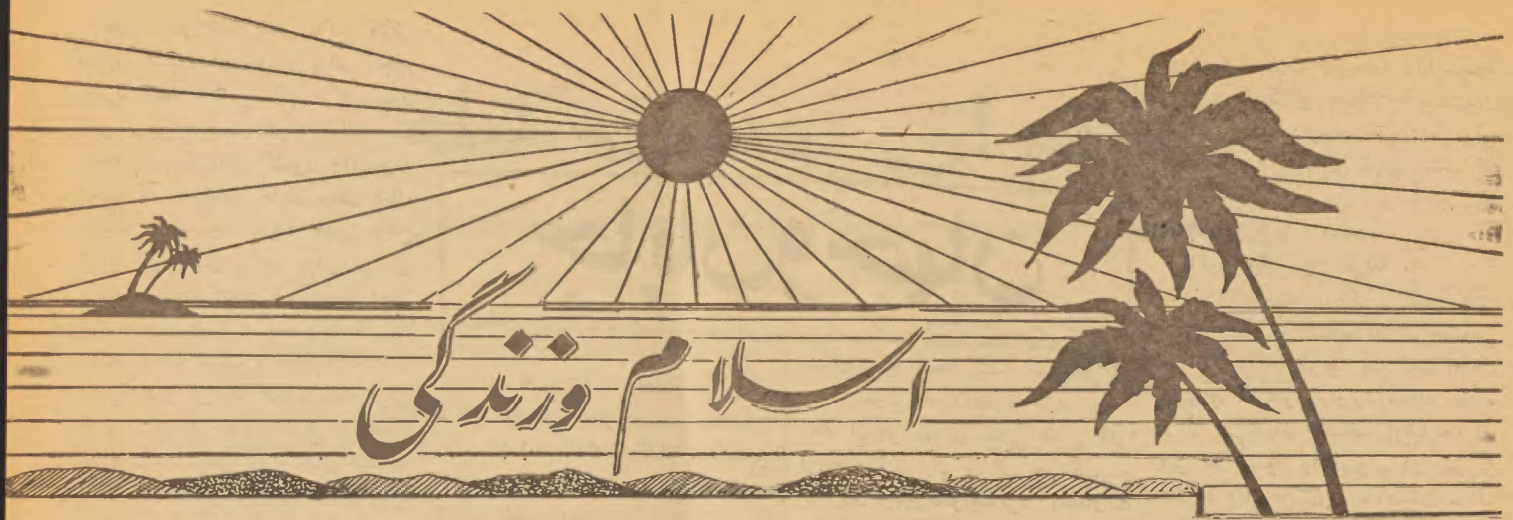 اسلام وزندگی